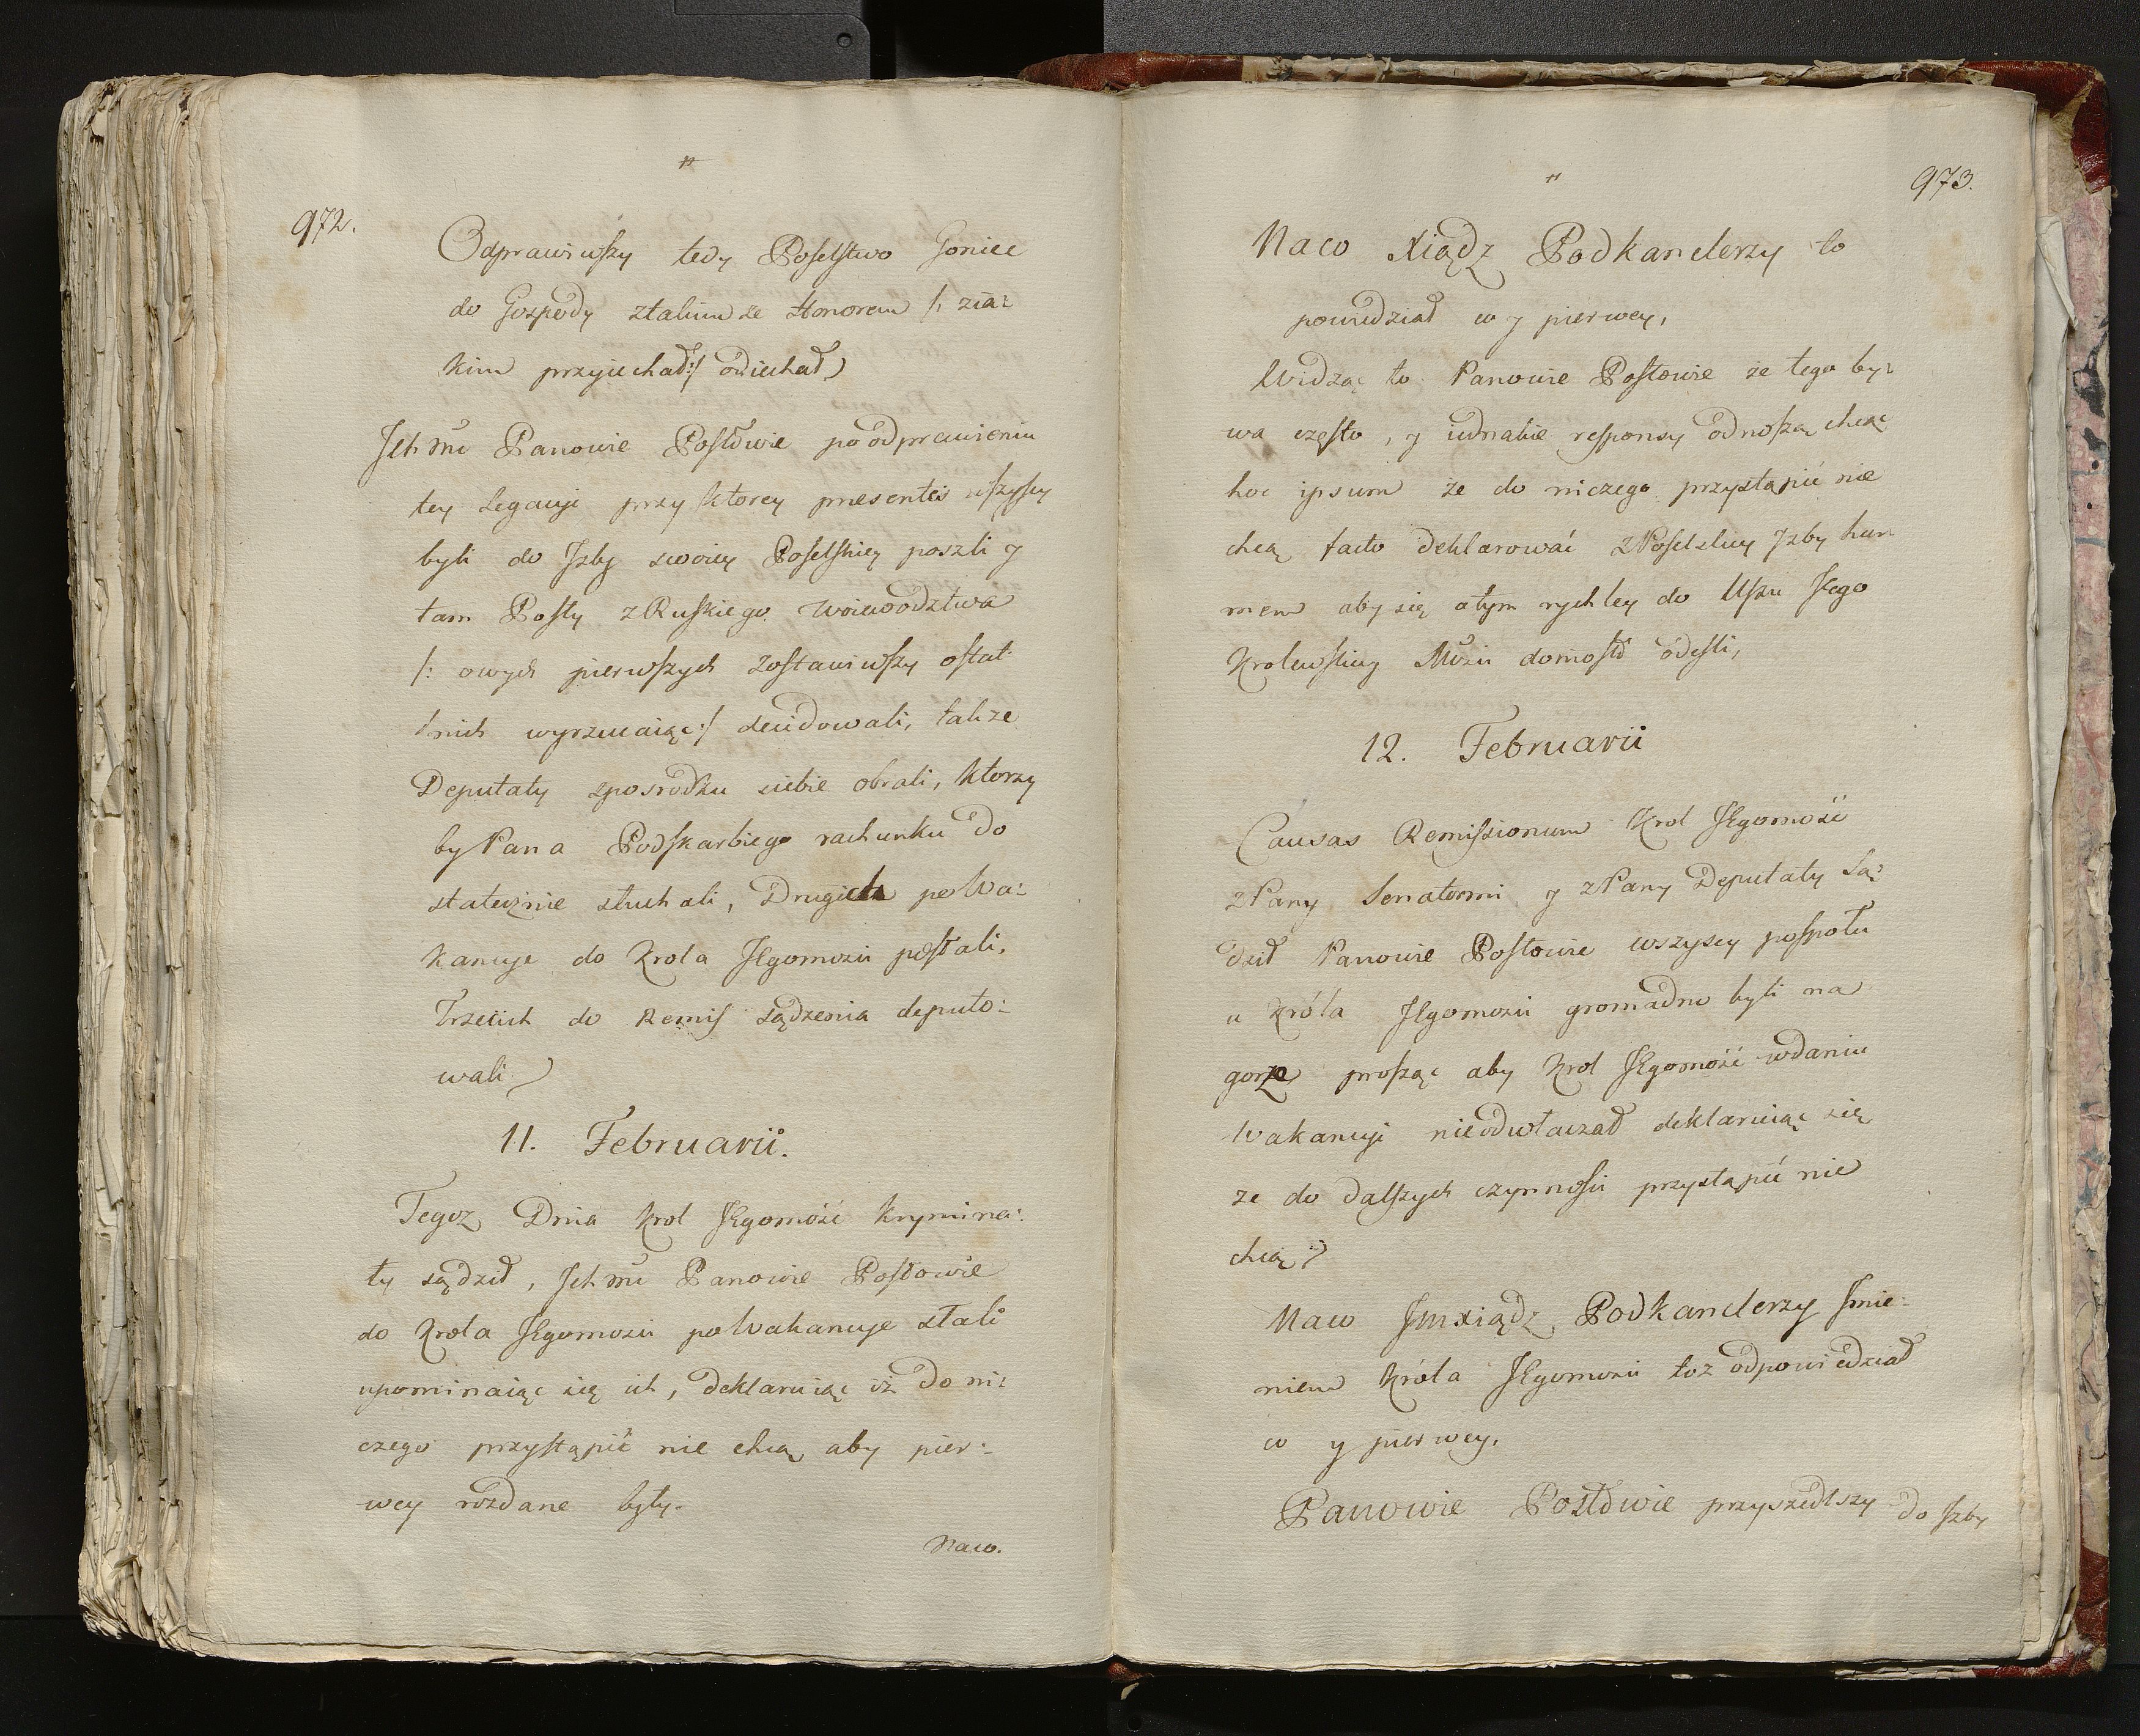 972.
Odprawiwszy tedy Poselstwo Goniec
do Gospody ztakim ze Honorem /: zia:
kim przyiechał :/ odiechał
Ich Mć Panowie Posłowie po odprawieniu
tey Legacyi przy ktorey presentes wszyscy
byli do Izby swoiey Poselskiey poszli y
tam Posły z Ruskiego Woiewodztwa
/: owych pierwszych zostawiwszy ostat:
tnich wyrzucaiąc :/ decidowali, także
Deputaty zposrodku siebie obrali, ktorzy
by Pana Podskarbiego rachunku do
statecznie słuchali, Drugich po Wa:
kancye do Krola JEgomości posłali,
Trzecich do Remis sądzenia deputo:
wali
11. Februarii.
Tegoz Dnia Krol JEgomość krymina:
ły sądził, Ich Mć Panowie Posłowie
do Krola JEgomości po Wakancye słali
upominaiąc się ich, deklaruiąc iż do ni:
czego przystąpić nie chcą aby pier:
wey rozdane były.
Naco.
973.
Naco Xiądz Podkanclerzy to
powiedział co y pierwey,
Widząc to Panowie Posłowie że tego by:
wa często, y iednakie responsy odnoszą chcąc
hoc ipsum że do niczego przystąpić nie
chcą facto deklarować z Poselskiey Izby hur
mem aby się otym rychley do Uszu Jego
Krolewskiey Mości doniosło odeśli,
12. Februarii
Causas Remissionum Krol JEgomość
z Pany Senatormi y z Pany Deputaty Są:
dził Panowie Posłowie wszyscy pospołu
u Króla JEgomości gromadno byli na
gorze prosząc aby Krol JEgomość wdaniu
Wakancyi nieodwłaczał deklaruiąc się
ze do dalszych czynnosci przystąpić nie
chcą
Naco Jmxiądz Podkanclerzy Jmie:
niem Króla JEgomości toż odpowiedział
co y pierwey.
Panowie Posłowie przyszedłszy do Izby